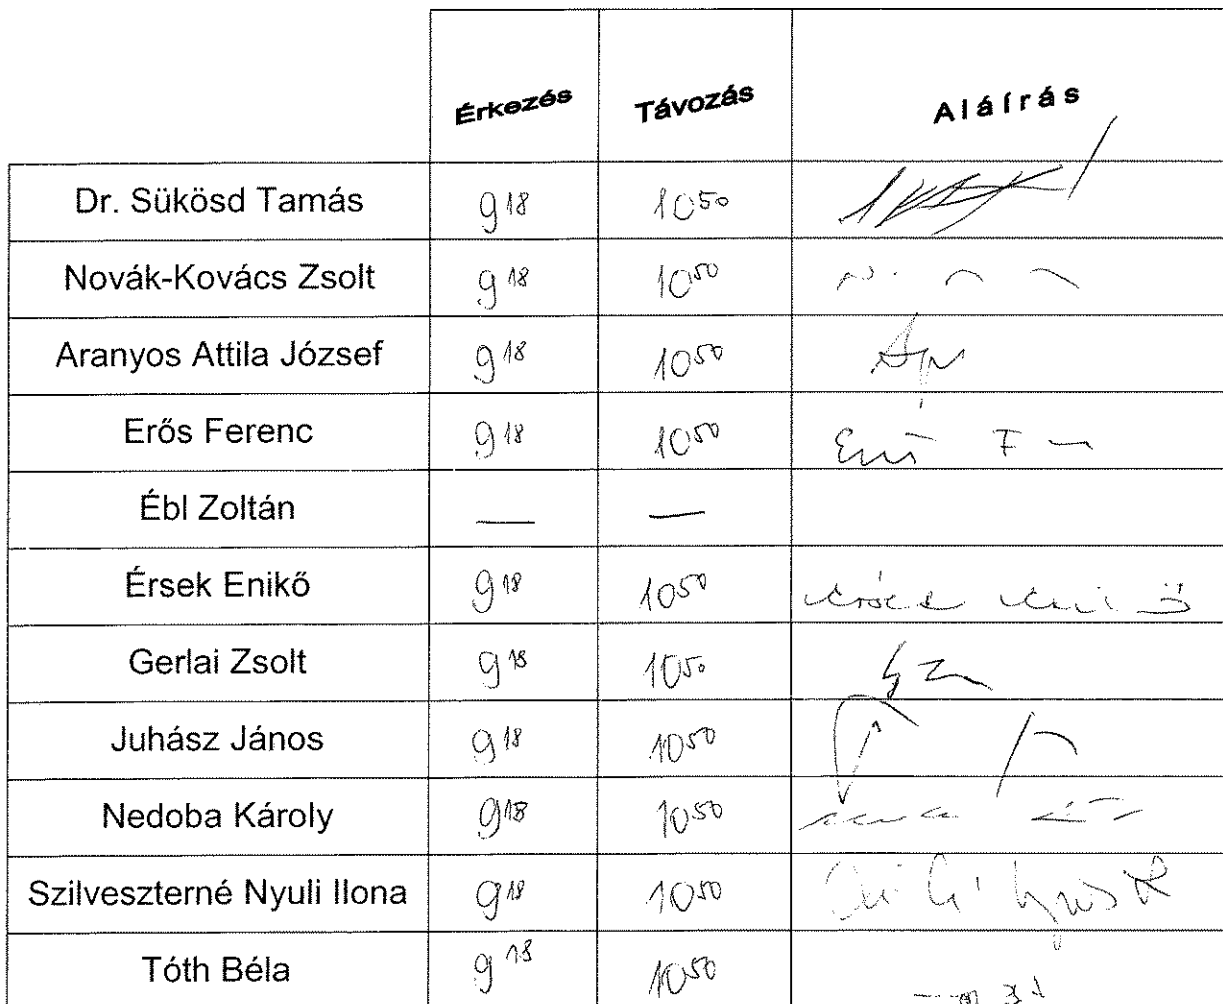 Érkezés Távozás Aláírás
Dr. Sükösd Tamás 9 18 10 50
Novák-Kovács Zsolt 9 18 10 50
Aranyos Attila József 9 18 10 50
Erős Ferenc 9 18 10 50 Erős F
Ébl Zoltán — —
Érsek Enikő 9 18 10 50
Gerlai Zsolt 9 18 10 50
Juhász János 9 18 10 50
Nedoba Károly 9 18 10 50
Szilveszterné Nyuli Ilona 9 18 10 50
Tóth Béla 9 18 10 50